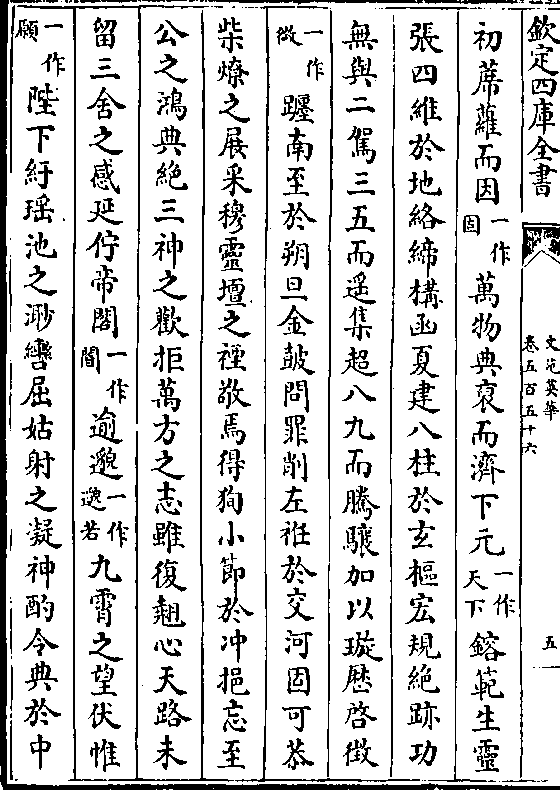 欽定四庫全書
文苑英華
卷五百五十六
五
初蓆蘿而因一作固萬物典裒而濟下元一作天下鎔範生靈
張四維於地絡締構函夏建八柱於玄樞宏規絶跡功
無與二駕三五而遥集超八九而騰驤加以璇厯啓徴
一作徴躔南至於朔旦金鼓問罪削左袵於交河固可恭
柴燎之展采穆靈壇之禋敬焉得狥小節於冲挹忘至
公之鴻典絶三神之歡拒萬方之志雖復翹心天路未
留三舍之感延佇帝閽一作閶逾邈一作邈若九霄之望伏惟
一作願陛下紆瑶池之渺轡屈姑射之凝神酌令典於中